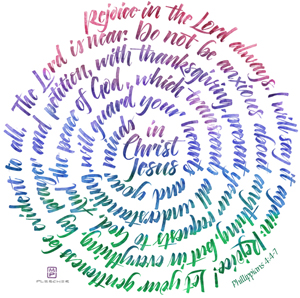 Rejoice in the Lord always. I will say it again: Rejoice! Let your gentleness be evident to all. The Lord is near. Do not be anxious about anything, but in everything by prayer and petition, with thanksgiving, present your requests to God. And the peace of God, which transcends all understanding, will guard your hearts and your minds
in
Christ
Jesus
Philippians 4:4-7